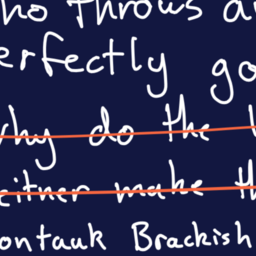 who throws a
perfectly go
why do the
either make th
Montauk Brackish